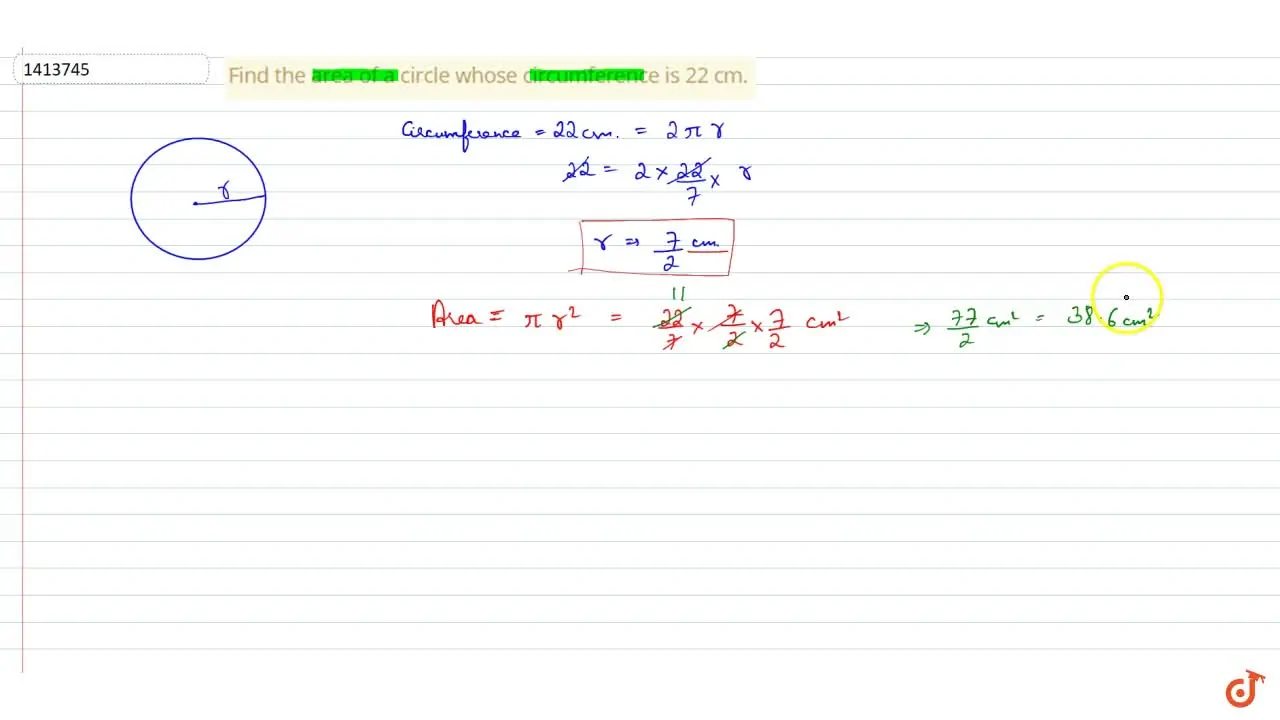 1413745
Find the area of a circle whose circumference is 22 cm.
Circumference = 22 cm. = 2 π r
22 = 2 × 22/7 × r
r
r ⇒ 7/2 cm.
11
Area = π r² = 22/7 × 7/2 × 7/2 cm² ⇒ 77/2 cm² = 38.6 cm²